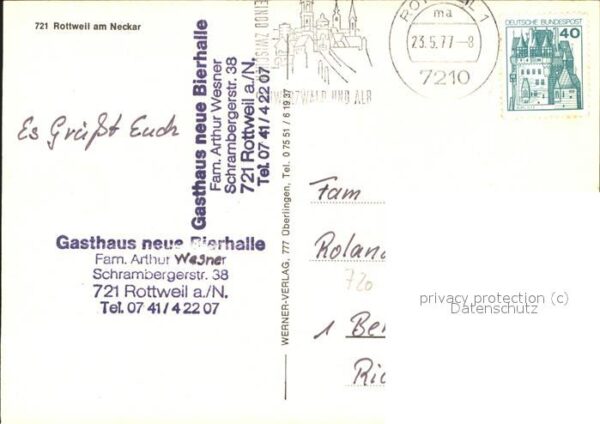 721 Rottweil am Neckar
Es Grüßt Euch
Gasthaus neue Bierhalle
Fam. Arthur Wesner
Schrambergerstr. 38
721 Rottweil a./N.
Tel. 07 41 / 4 22 07
Gasthaus neue Bierhalle
Fam. Arthur Wesner
Schrambergerstr. 38
721 Rottweil a./N.
Tel. 07 41 / 4 22 07
WERNER-VERLAG, 777 Überlingen, Tel. 0 75 51 / 6 19 37
UND ALB
1
ma
23.5.77-8
7210
DEUTSCHE BUNDESPOST
40
Fam
Rolan
720
1 Be
Ri
privacy protection (c)
Datenschutz